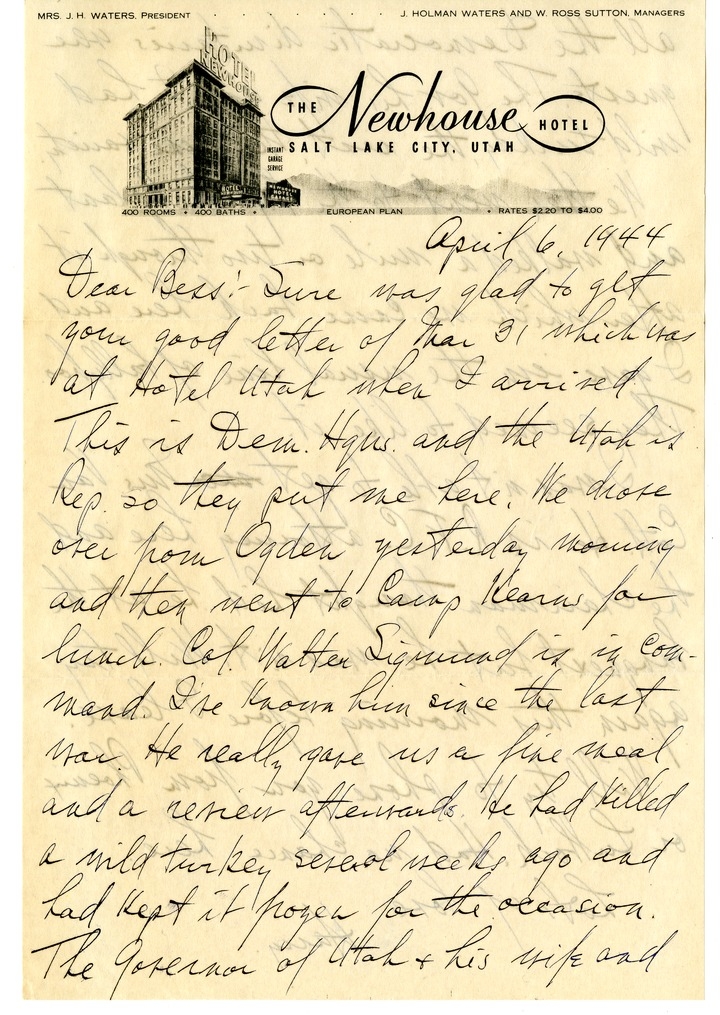 MRS. J. H. WATERS, PRESIDENT . . . . . . . . J. HOLMAN WATERS AND W. ROSS SUTTON, MANAGERS
HOTEL
NEWHOUSE
THE Newhouse HOTEL
SALT LAKE CITY, UTAH
INSTANT
GARAGE
SERVICE
NEWHOUSE
HOTEL
GARAGE
400 ROOMS • 400 BATHS • EUROPEAN PLAN • RATES $2.20 TO $4.00
April 6, 1944
Dear Bess:- Sure was glad to get
your good letter of Mar 31 which was
at Hotel Utah when I arrived.
This is Dem. Hqrs. and the Utah is
Rep. so they put me here. We drove
over from Ogden yesterday morning
and then went to Camp Kearns for
lunch. Col. Walter Sigmund is in com-
mand. I've known him since the last
war. He really gave us a fine meal
and a review afterwards. He had killed
a wild turkey several weeks ago and
had kept it frozen for the occasion.
The Governor of Utah & his wife and